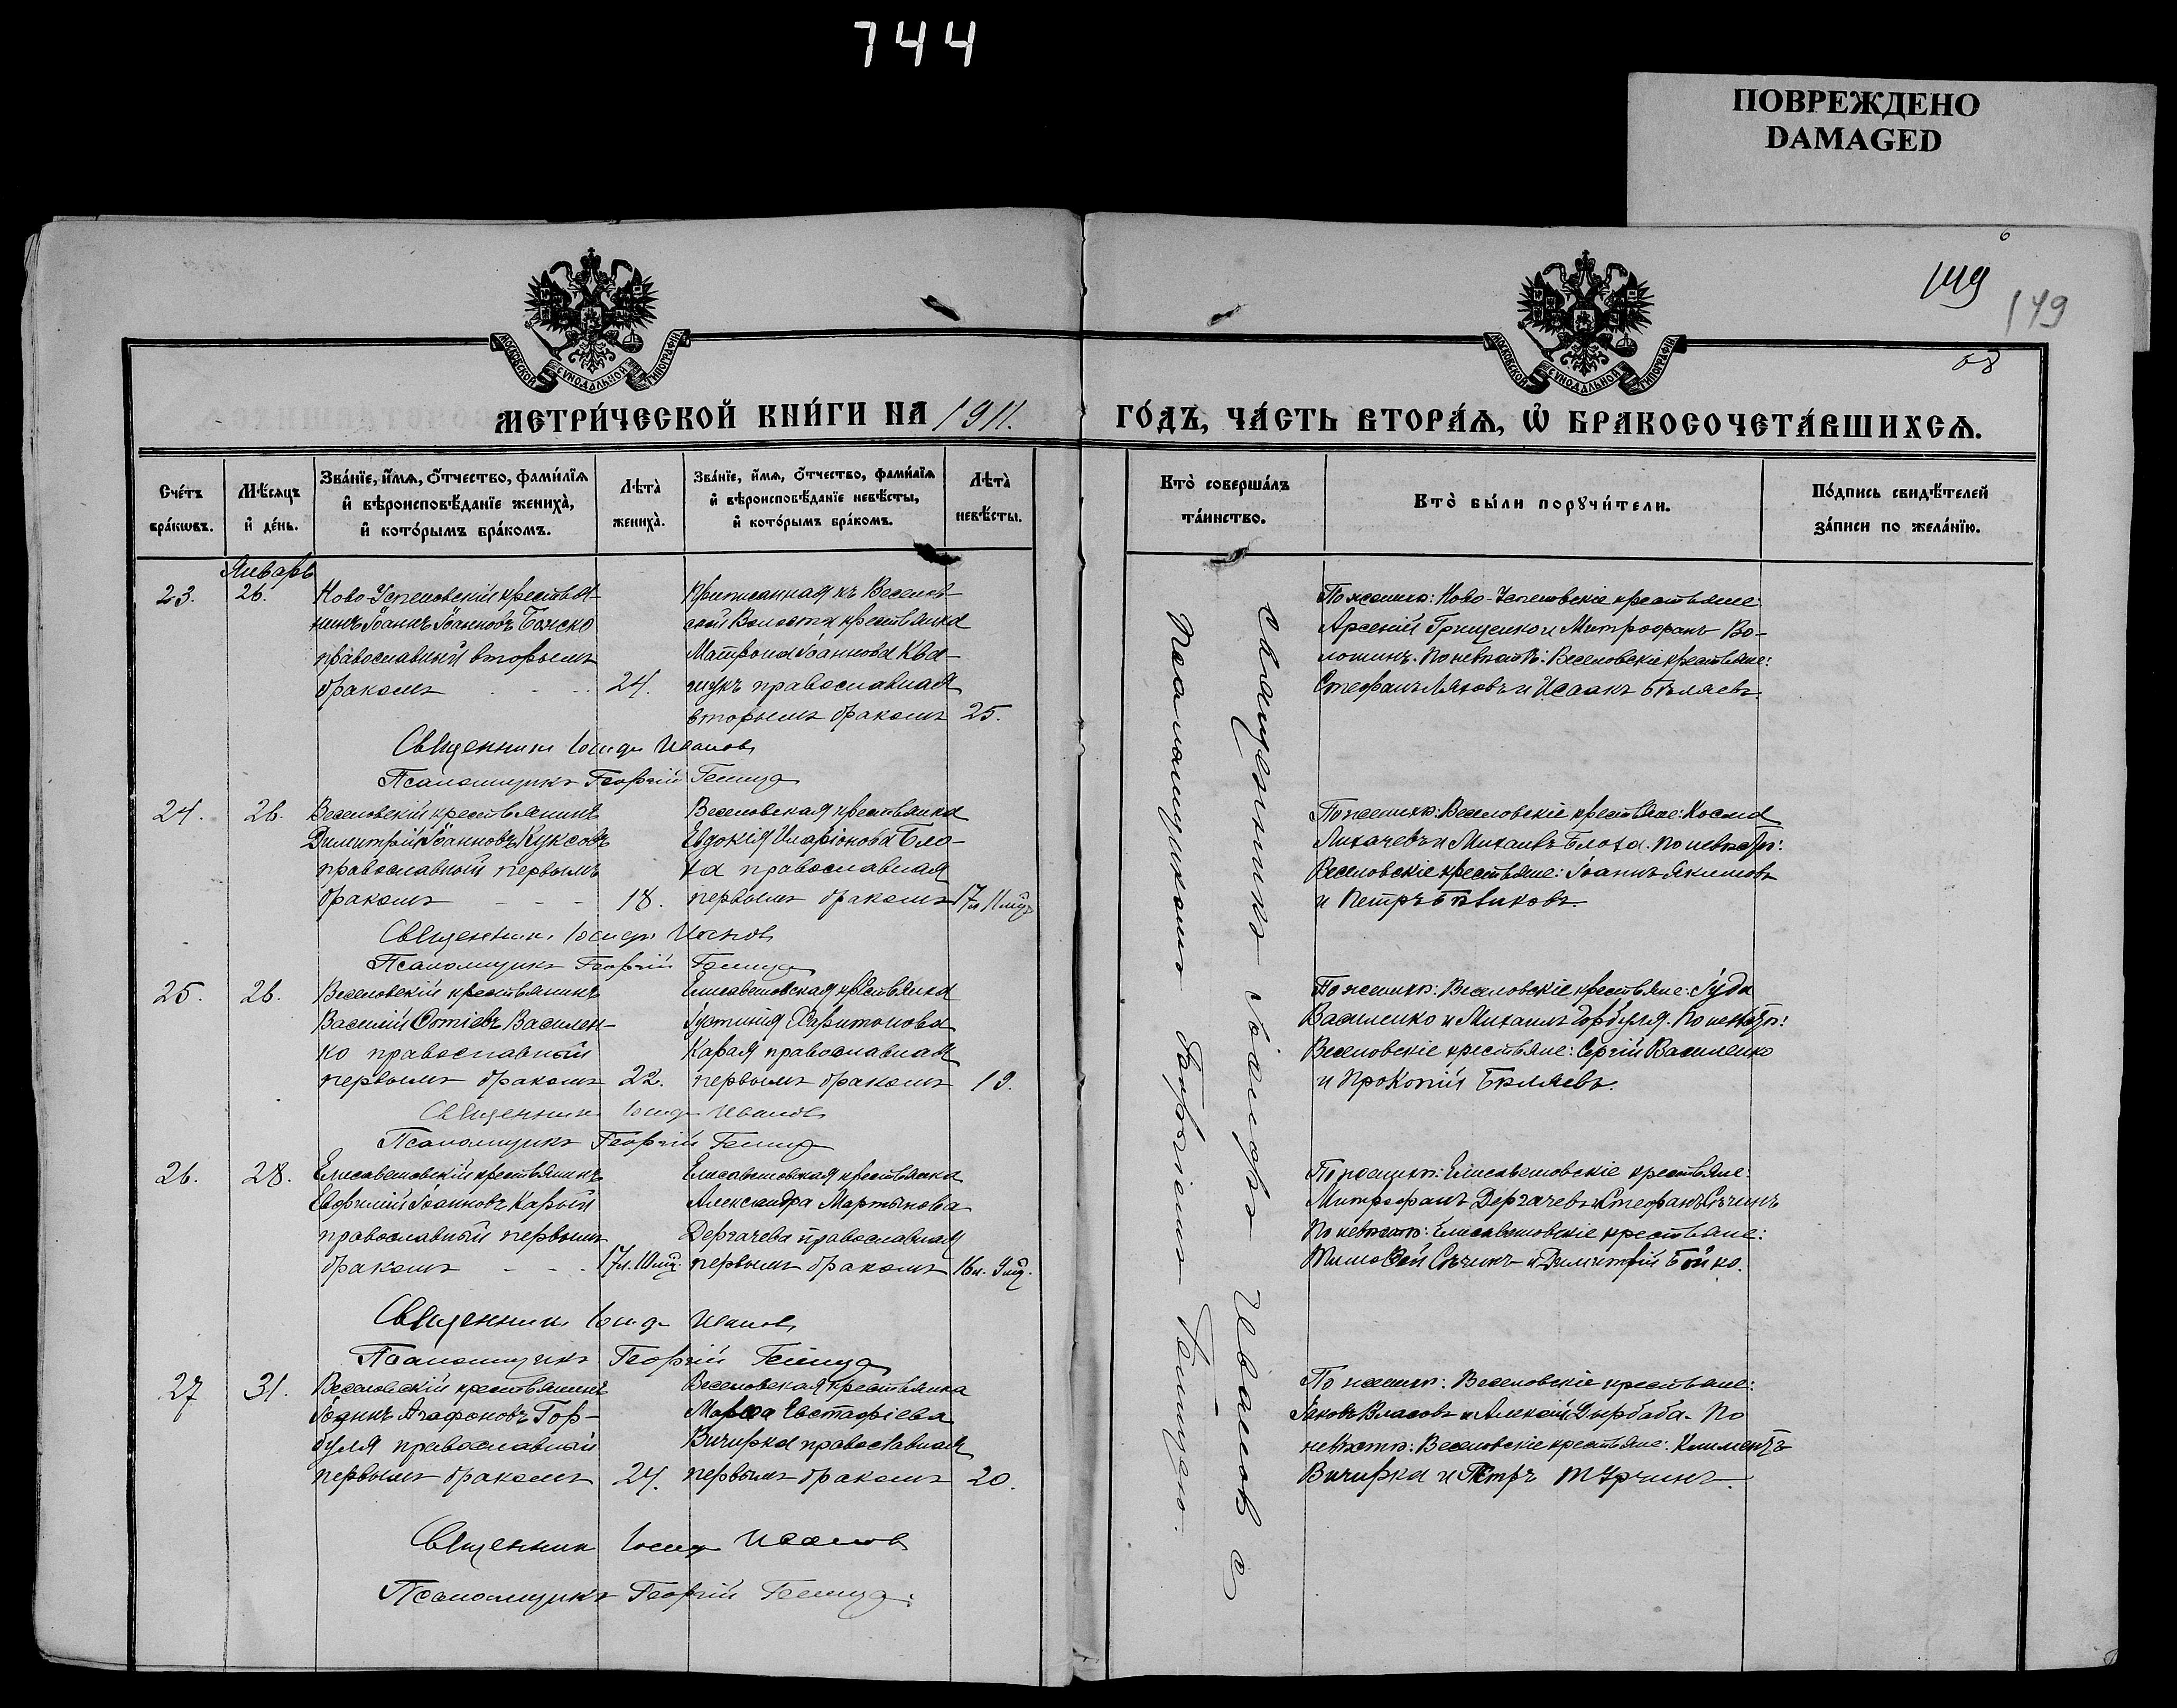 744
ПОВРЕЖДЕНО
DAMAGED
149
149
МОСКОВСКОЙ СѴНОДАЛЬНОЙ ТИПОГРАФІИ
МОСКОВСКОЙ СѴНОДАЛЬНОЙ ТИПОГРАФІИ
МЕТРИ́ЧЕСКОЙ КНИ́ГИ НА 1911.
ГО́ДЪ, ЧА́СТЬ ВТОРА́Ѧ, Ѿ БРАКОСОЧЕТА́ВШИХСѦ.
Сче́тъ бра́кѡвъ.
Мѣ́сѧцъ и҆ де́нь.
Зва́нїе, и҆́мѧ, ѻ҆́тчество, фами́лїѧ и҆ вѣроисповѣ́данїе жениха̀, и҆ кото́рымъ бра́комъ.
Лѣта̀ жениха̀.
Зва́нїе, и҆́мѧ, ѻ҆́тчество, фами́лїѧ и҆ вѣроисповѣ́данїе невѣ́сты, и҆ кото́рымъ бра́комъ.
Лѣта̀ невѣ́сты.
Кто̀ соверша́лъ та́инство.
Кто̀ бы́ли порꙋчи́тели.
По́дпись свидѣ́телей за́писи по жела́нїю.
Январь
23.
26.
Ново-Успеновскій крестья-
нинъ Іоаннъ Іоанновъ
православный вторымъ
бракомъ
24.
Приписанная къ Веселов-
ской Волости крестьянка
Матрона Іоаннова Ква-
шукъ православная
вторымъ бракомъ
25.
По женихѣ: Ново-Успеновскіе крестьяне:
Арсеній Грищенко и Митрофанъ Во-
лошинъ. По невѣстѣ: Веселовскіе крестьяне:
Стефанъ Ляховъ и Исаакъ Бѣляевъ.
Священникъ Іосифъ Ивановъ
Псаломщикъ Георгій
24.
26.
Веселовскій крестьянинъ
Димитрій Іоанновъ Куксовъ
православный первымъ
бракомъ
18.
Веселовская крестьянка
Евдокія Иларіонова Бло-
ха православная
первымъ бракомъ
17л 11мцъ
По женихѣ: Веселовскіе крестьяне: Косма
Лихачевъ и Михаилъ Блоха. По невѣстѣ:
Веселовскіе крестьяне: Іоаннъ Якимовъ
и Петръ Бѣликовъ.
Священникъ Іосифъ Ивановъ
Псаломщикъ Георгій
25.
26.
Веселовскій крестьянинъ
Василій Фотіевъ Василен-
ко православный
первымъ бракомъ
22.
Елисаветовская крестьянка
Іустинія Харитонова
Карая православная
первымъ бракомъ
19.
По женихѣ: Веселовскіе крестьяне: Іуда
Василенко и Михаилъ Горбуля. По невѣстѣ:
Веселовскіе крестьяне: Сергій Василенко
и Прокопій Бѣляевъ.
Священникъ Іосифъ Ивановъ
Псаломщикъ Георгій
26.
28.
Елисаветовскій крестьянинъ
Евфимій Іоанновъ Карый
православный первымъ
бракомъ
17л. 10мц.
Елисаветовская крестьянка
Александра Мартынова
Дергачева православная
первымъ бракомъ
16л. 9мц.
По женихѣ: Елисаветовскіе крестьяне:
Митрофанъ Дергачевъ и Стефанъ Сѣчинъ
По невѣстѣ: Елисаветовскіе крестьяне:
Тимофей Сѣчинъ и Димитрій Бойко.
Священникъ Іосифъ Ивановъ
Псаломщикъ Георгій
27
31.
Веселовскій крестьянинъ
Іоаннъ Агафоновъ Гор-
буля православный
первымъ бракомъ
24.
Веселовская крестьянка
Марфа Евстафіева
Вичирка православная
первымъ бракомъ
20.
По женихѣ: Веселовскіе крестьяне:
Іаковъ Власовъ и Алексій Дырбаба. По
невѣстѣ: Веселовскіе крестьяне: Климентъ
Вичирка и Петръ Турчинъ.
Священникъ Іосифъ Ивановъ
Псаломщикъ Георгій
Священникъ Іосифъ Ивановъ съ
Псаломщикомъ Георгіемъ